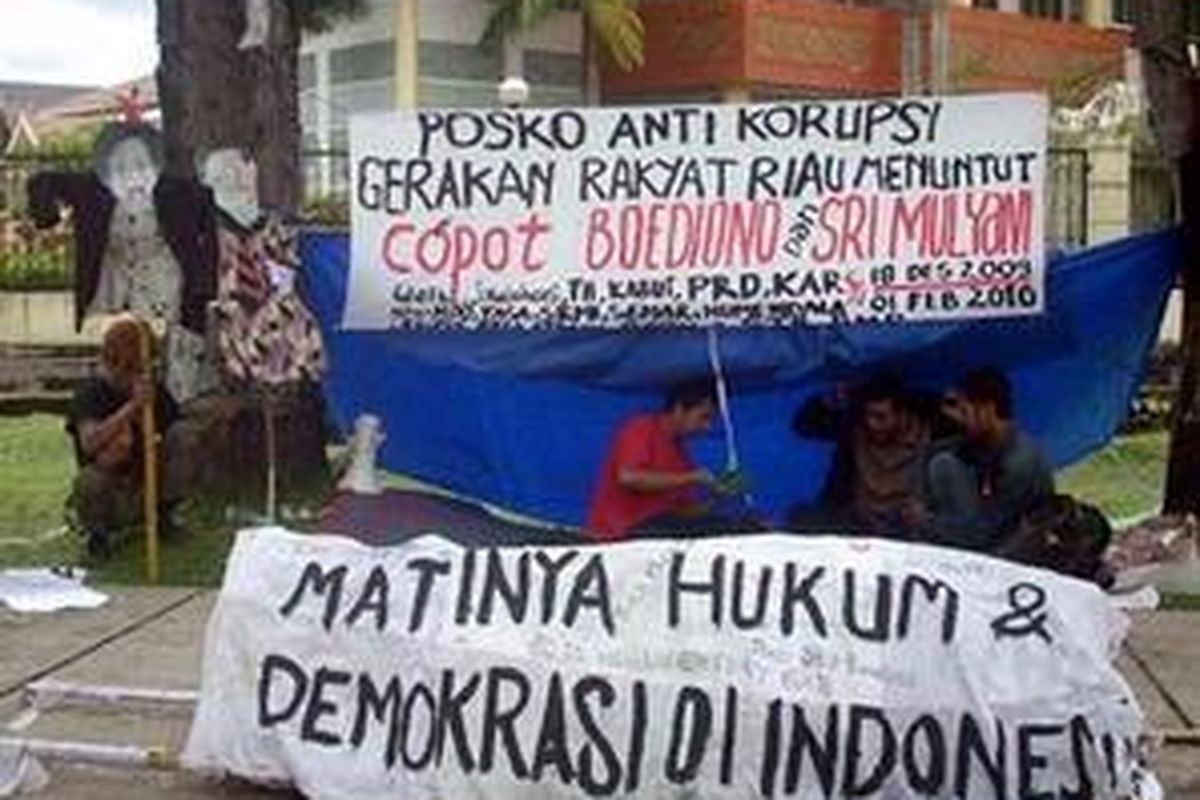 POSKO ANTI KORUPSI
GERAKAN RAKYAT RIAU MENUNTUT
COPOT BOEDIONO DAN SRI MULYANI
KABUT, PRD, KAR 18 DES 2009
01 FEB 2010
MATINYA HUKUM &
DEMOKRASI DI INDONES